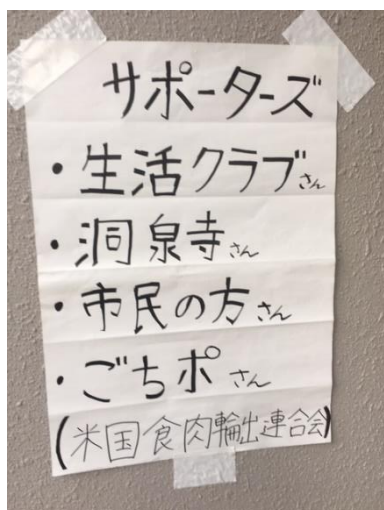 サポーターズ
・生活クラブさん
・洞泉寺さん
・市民の方さん
・ごちポさん
(米国食肉輸出連合会)